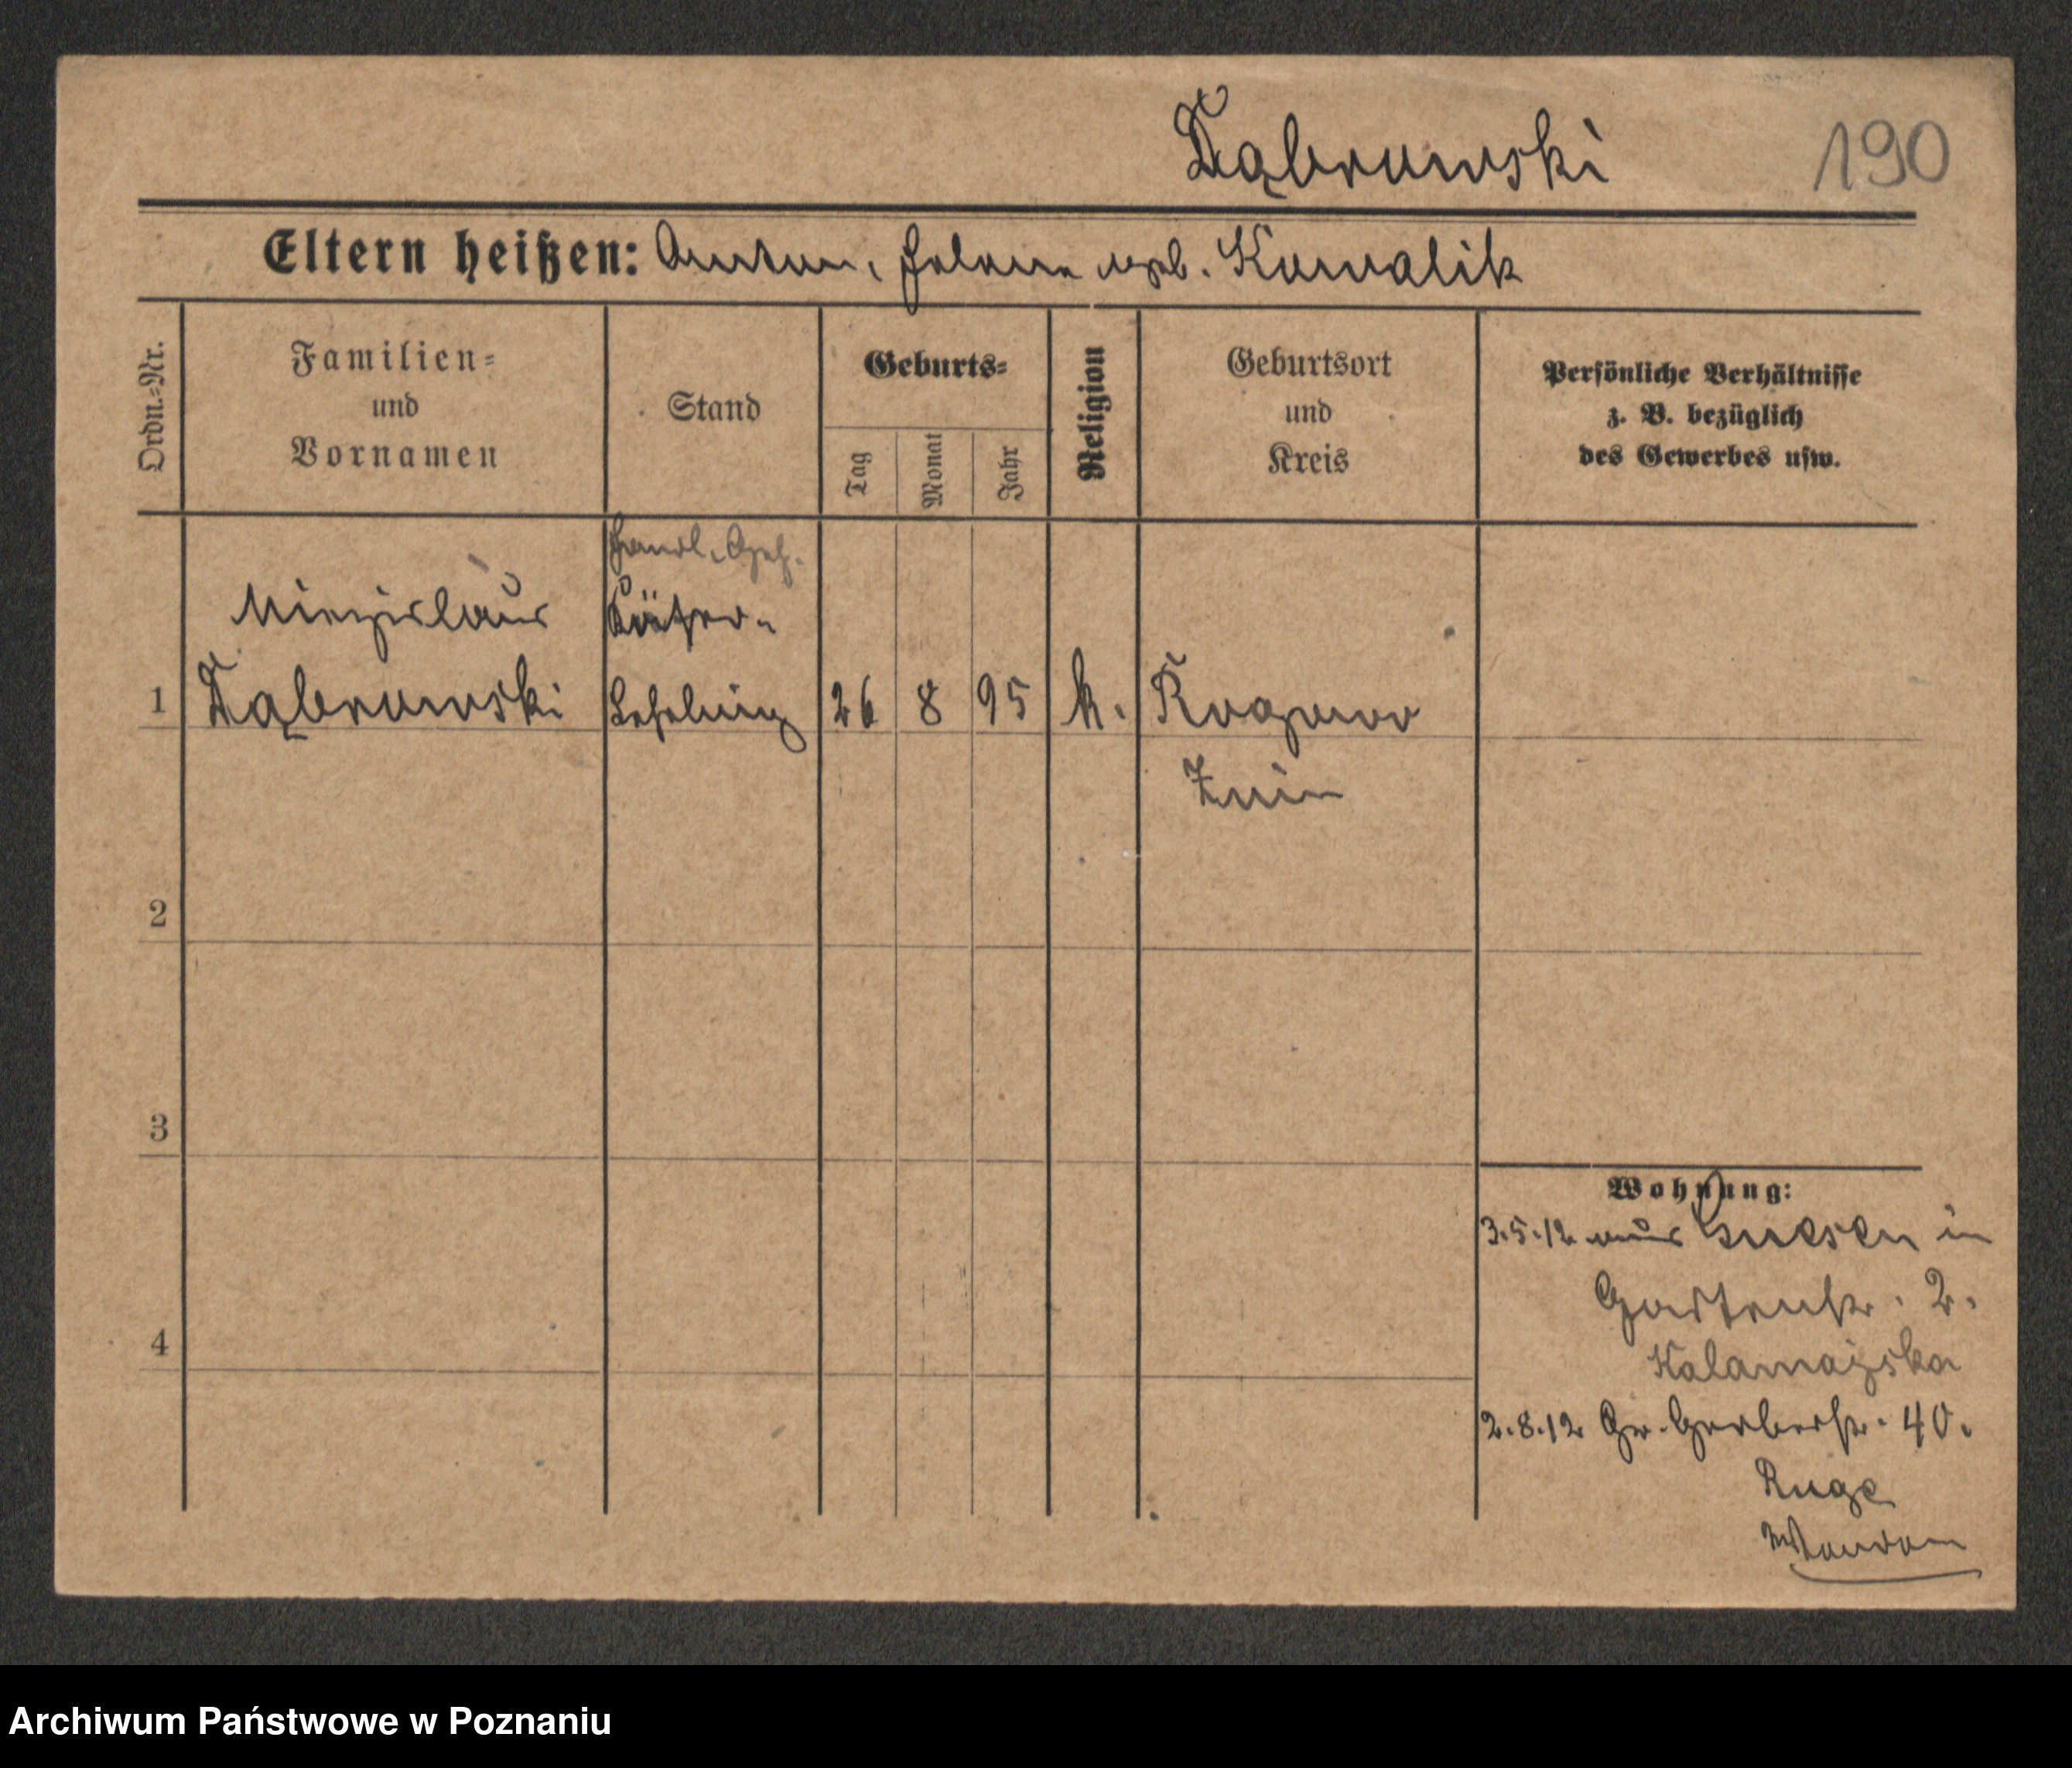 Dąbrowski 190
Eltern heißen: Anton, Helene geb. Kowalik
Ordn.-Nr.
Familien-
und
Vornamen
Stand
Geburts-
Tag
Monat
Jahr
Religion
Geburtsort
und
Kreis
Persönliche Verhältnisse
z. B. bezüglich
des Gewerbes usw.
Handl. Geh.
Miezislaus
1 Dąbrowski Lehrling 26 8 95 k. Rogowo
Znin
2
3
4
Wohnung:
3.5.12 aus Gnesen in
Gartenstr. 2.
Kalamajska
2.8.12 Gr. Gerberstr. 40.
Ruge
Archiwum Państwowe w Poznaniu